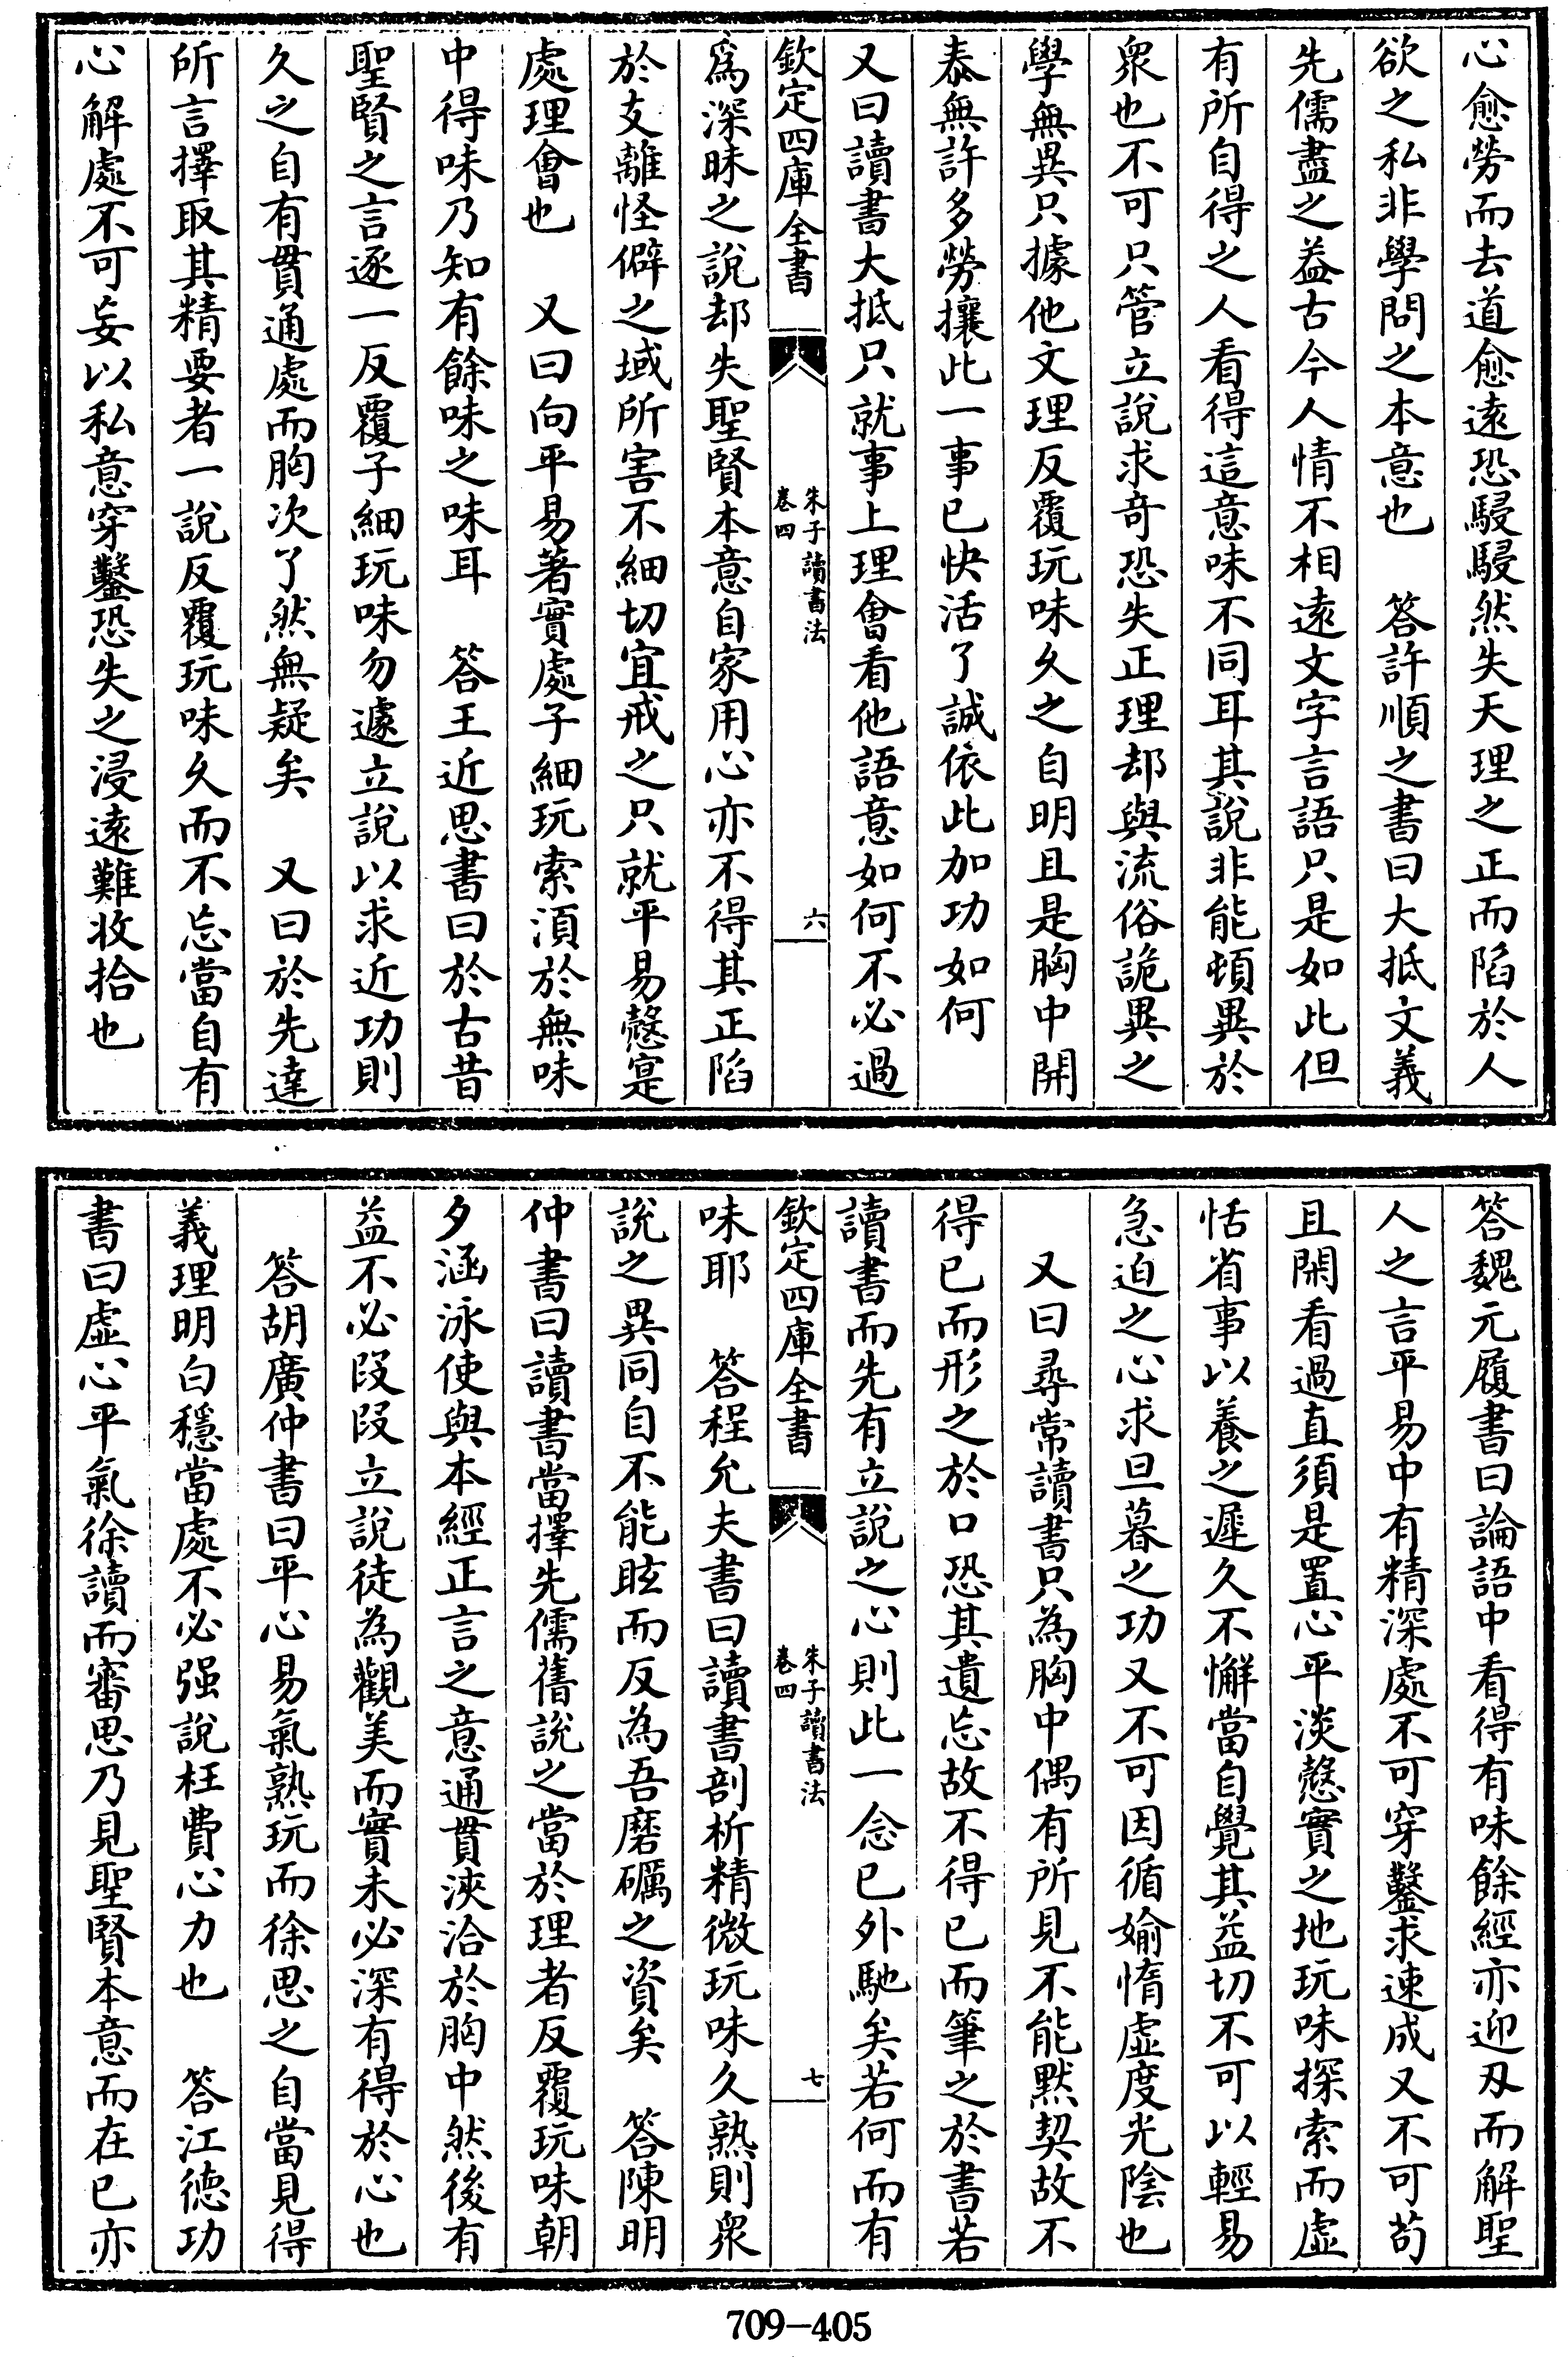 心愈勞而去道愈遠恐駸駸然失天理之正而陷於人
欲之私非學問之本意也　答許順之書曰大抵文義
先儒盡之益古今人情不相遠文字言語只是如此但
有所自得之人看得這意味不同耳其說非能頓異於
衆也不可只管立說求奇恐失正理却與流俗詭異之
學無異只據他文理反覆玩味久之自明且是胸中開
泰無許多勞攘此一事已快活了誠依此加功如何
又曰讀書大抵只就事上理會看他語意如何不必過
欽定四庫全書
朱子讀書法
卷四
六
爲深昧之說却失聖賢本意自家用心亦不得其正陷
於支離怪僻之域所害不細切宜戒之只就平易慤寔
處理會也　又曰向平易著實處子細玩索須於無味
中得味乃知有餘味之味耳　答王近思書曰於古昔
聖賢之言逐一反覆子細玩味勿遽立說以求近功則
久之自有貫通處而胸次了然無疑矣　又曰於先達
所言擇取其精要者一說反覆玩味久而不忘當自有
心解處不可妄以私意穿鑿恐失之浸遠難收拾也
答魏元履書曰論語中看得有味餘經亦迎刃而解聖
人之言平易中有精深處不可穿鑿求速成又不可苟
且閑看過直須是置心平淡慤實之地玩味探索而虛
恬省事以養之遲久不懈當自覺其益切不可以輕易
急迫之心求旦暮之功又不可因循媮惰虛度光陰也
又曰尋常讀書只為胸中偶有所見不能默契故不
得已而形之於口恐其遺忘故不得已而筆之於書若
讀書而先有立說之心則此一念已外馳矣若何而有
欽定四庫全書
朱子讀書法
卷四
七
味耶　答程允夫書曰讀書剖析精微玩味久熟則衆
說之異同自不能眩而反為吾磨礪之資矣　答陳明
仲書曰讀書當擇先儒舊說之當於理者反覆玩味朝
夕涵泳使與本經正言之意通貫浹洽於胸中然後有
益不必段段立說徒為觀美而實未必深有得於心也
答胡廣仲書曰平心易氣熟玩而徐思之自當見得
義理明白穩當處不必强說枉費心力也　答江德功
書曰虛心平氣徐讀而審思乃見聖賢本意而在已亦
709-405